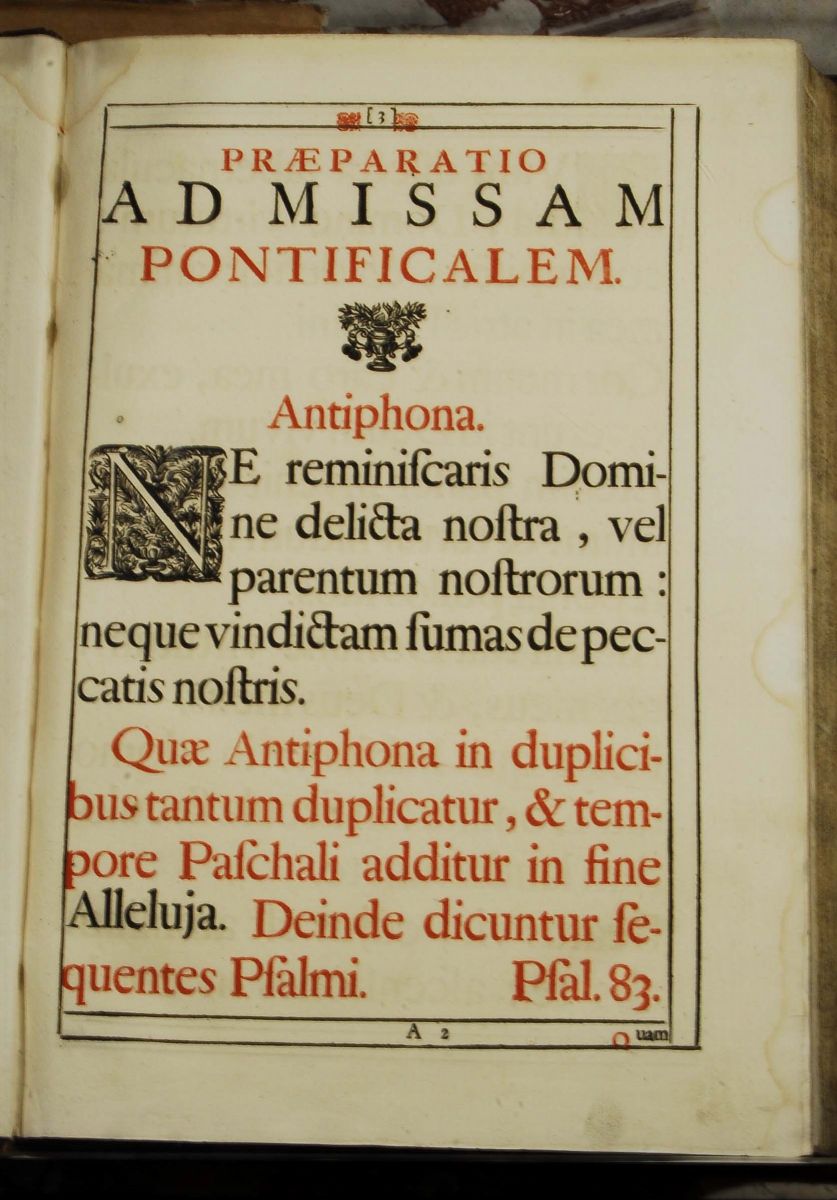 [3]
PRÆPARATIO
AD MISSAM
PONTIFICALEM.
Antiphona.
NE reminiſcaris Domi-
ne delicta noſtra , vel
parentum noſtrorum :
neque vindictam ſumas de pec-
catis noſtris.
Quæ Antiphona in duplici-
bus tantum duplicatur, & tem-
pore Paſchali additur in fine
Alleluja. Deinde dicuntur ſe-
quentes Pſalmi. Pſal. 83.
A 2 Quam